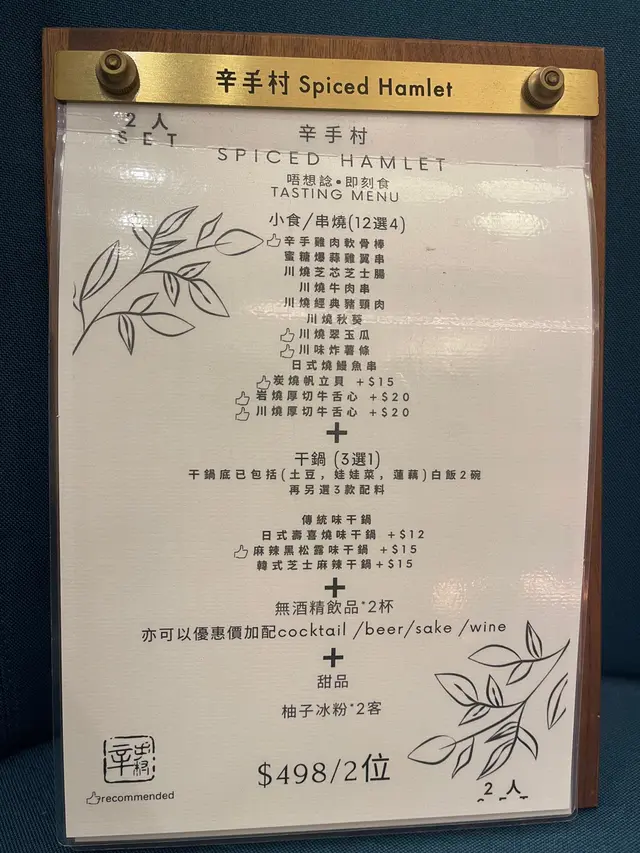 辛手村 Spiced Hamlet
2人
SET
辛手村
SPICED HAMLET
唔想諗•即刻食
TASTING MENU
小食/串燒(12選4)
辛手雞肉軟骨棒
蜜糖爆蒜雞翼串
川燒芝芯芝士腸
川燒牛肉串
川燒經典豬頸肉
川燒秋葵
川燒翠玉瓜
川味炸薯條
日式燒鰻魚串
炭燒帆立貝 +$15
岩燒厚切牛舌心 +$20
川燒厚切牛舌心 +$20
+
干鍋 (3選1)
干鍋底已包括(土豆，娃娃菜，蓮藕)白飯2碗
再另選3款配料
傳統味干鍋
日式壽喜燒味干鍋 +$12
麻辣黑松露味干鍋 +$15
韓式芝士麻辣干鍋+$15
+
無酒精飲品*2杯
亦可以優惠價加配cocktail /beer/sake /wine
+
甜品
柚子冰粉*2客
$498/2位
recommended
2人